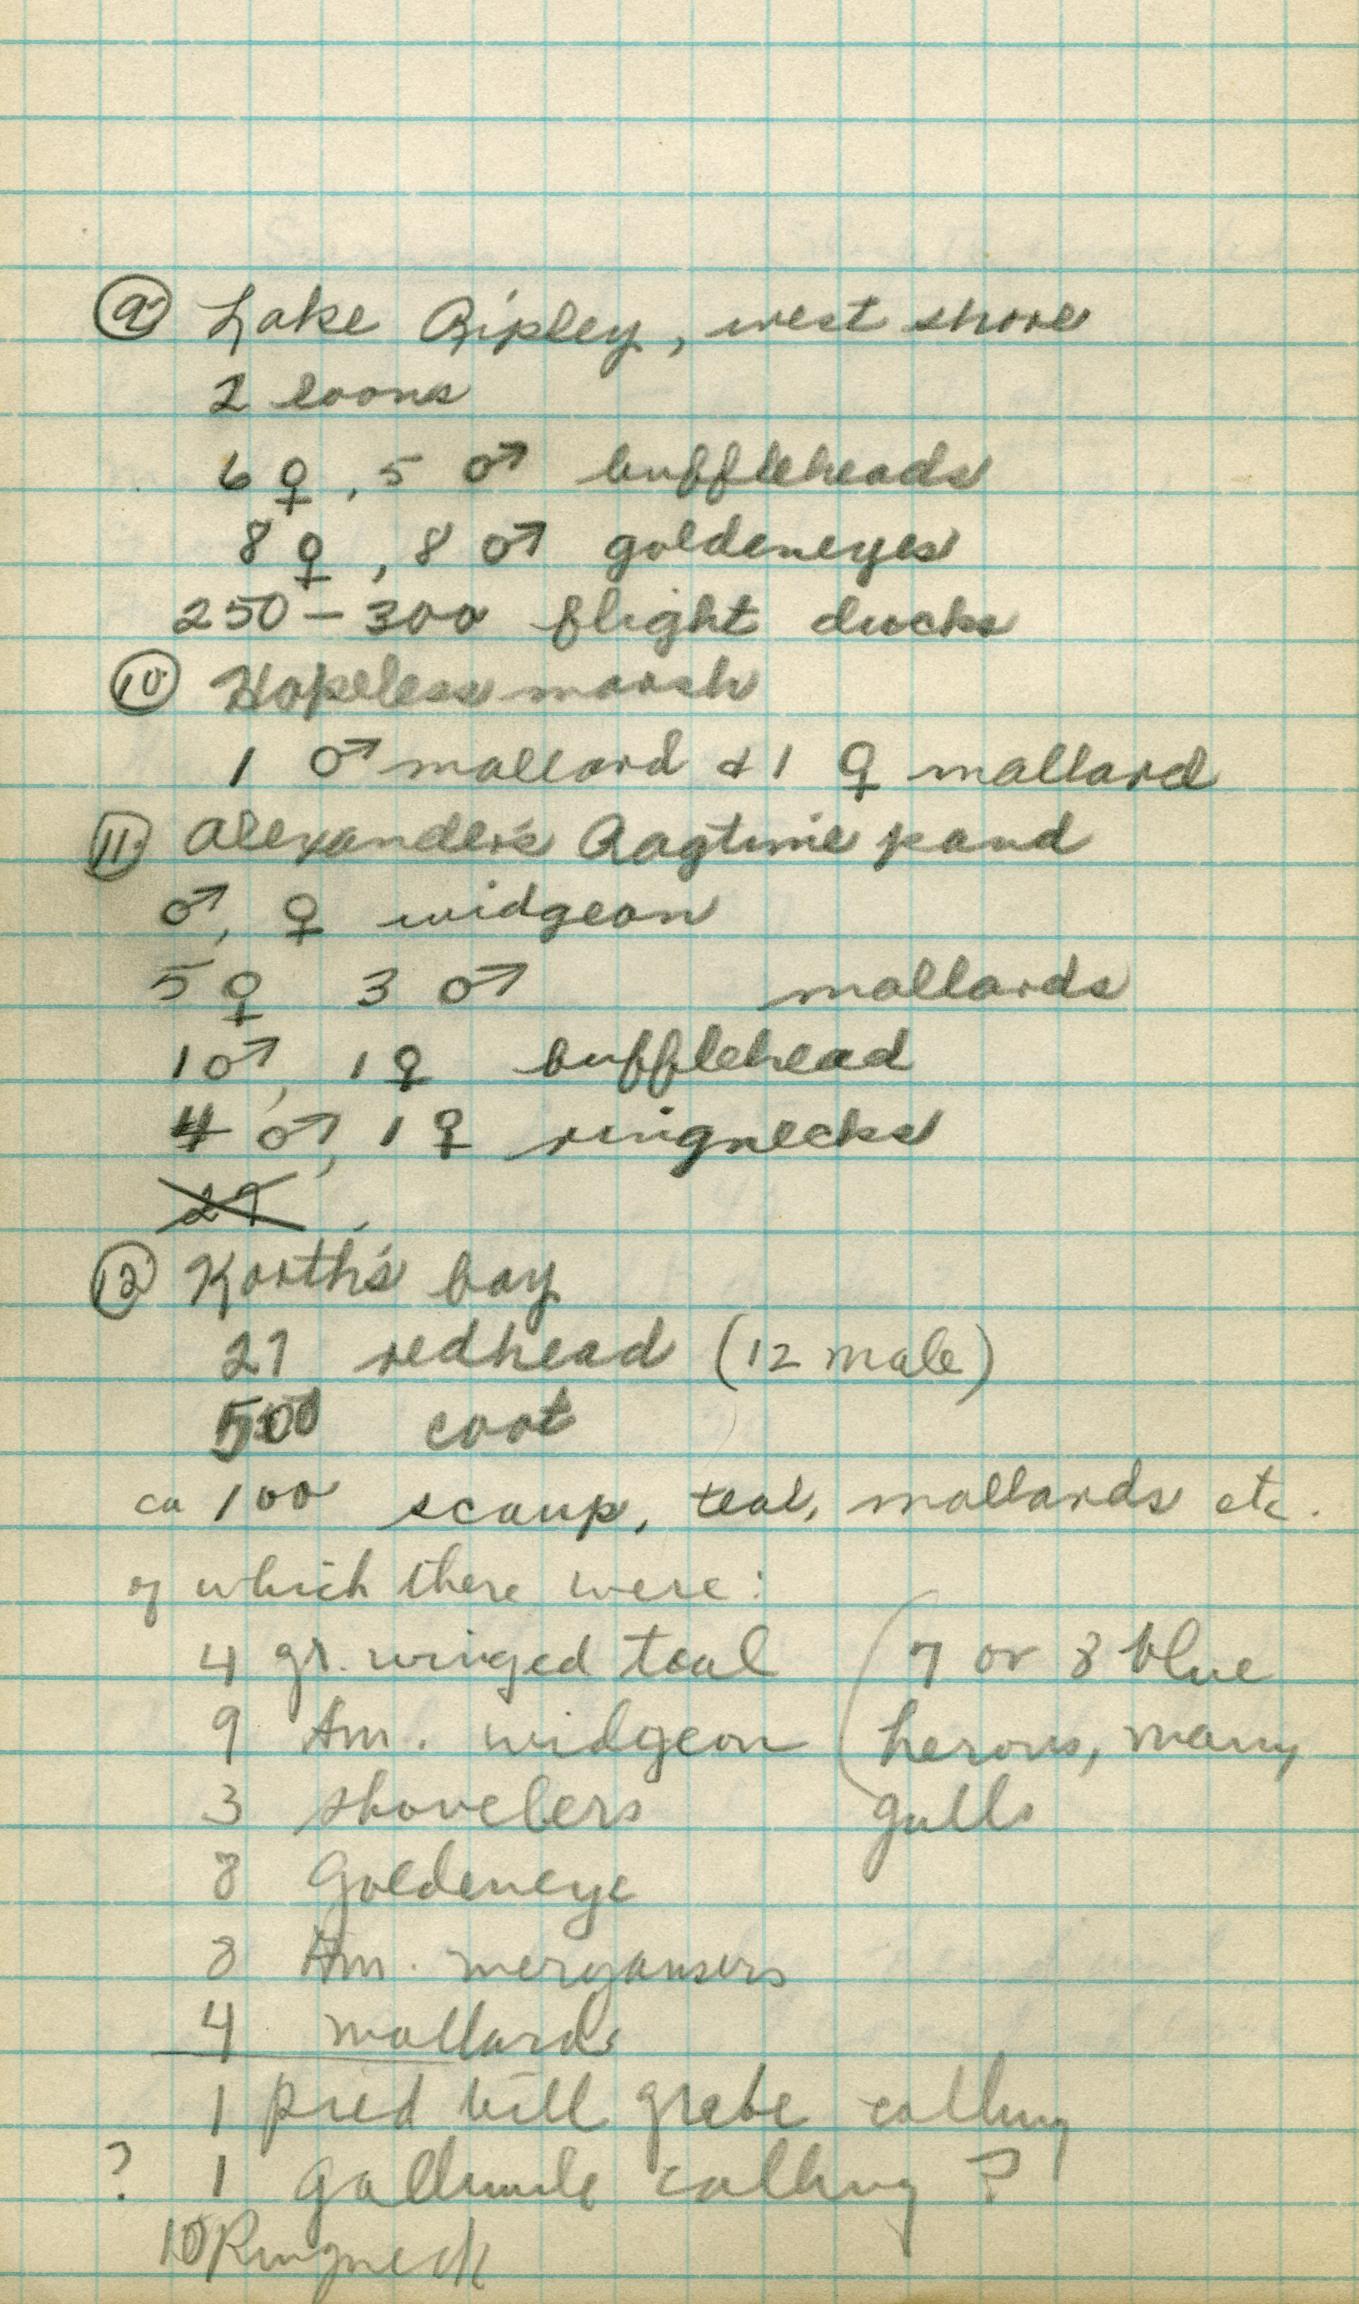 9 Lake Ripley, west shore
2 loons
6 ♀, 5 ♂ buffleheads
8 ♀, 8 ♂ goldeneyes
250 - 300 flight ducks
10 Hopeless marsh
1 ♂ mallard & 1 ♀ mallard
11 Alexander's Ragtime pond
♂, ♀ widgeon
5 ♀ 3 ♂ mallards
1 ♂, 1 ♀ bufflehead
4 ♂, 1 ♀ ringnecks
27
12 Korth's bay
27 redhead (12 male)
500 coot
ca 100 scaup, teal, mallards etc.
of which there were:
4 gr. winged teal
9 Am. widgeon
3 shovelers
8 Goldeneye
8 Am. mergansers
4 mallards
(7 or 8 blue
herons, many
gulls
1 pied bill grebe calling
? 1 gallinule calling ?
10 Ringneck